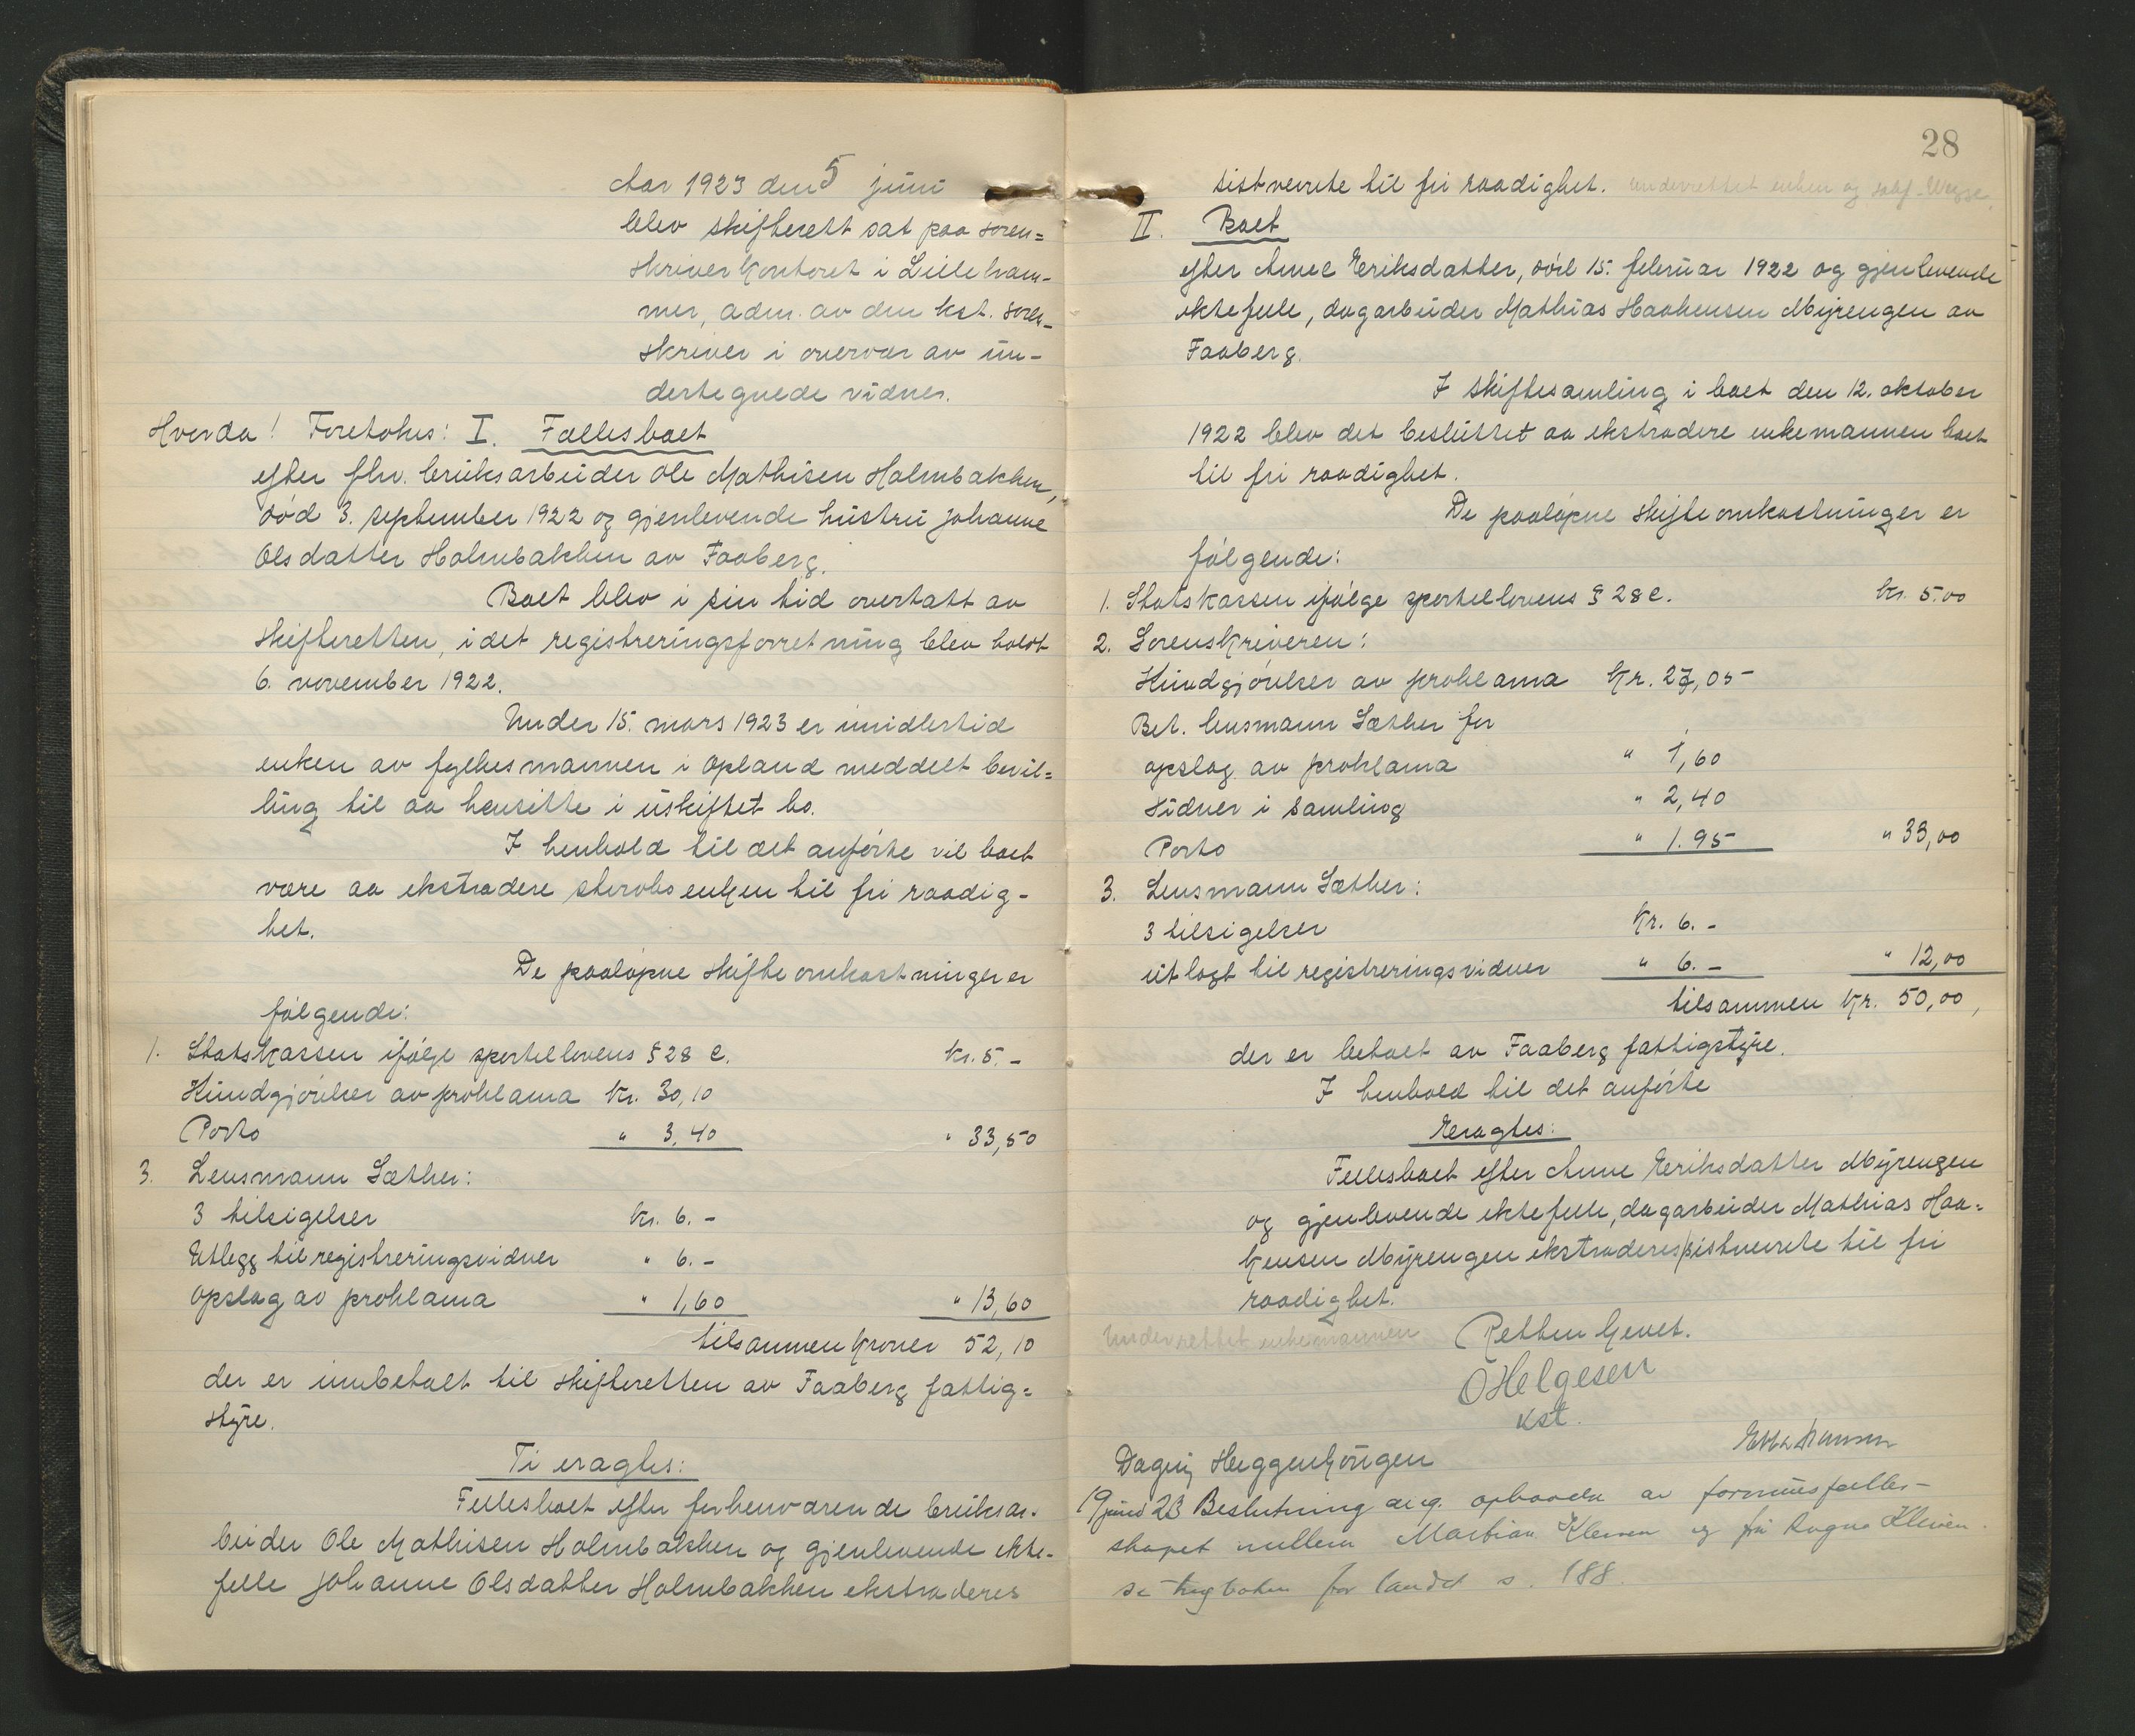 Aar 1923 den 5 juni
blev skifterett sat paa soren=
skriverkontoret i Lilleham-
mer, adm. av den kst. soren-
skriver i overvær av un-
dertegnede vidner.
Hvorda! Foretokes: I. Fællesboet
efter fhv. bruksarbeider Ole Mathisen Holmbakken,
død 3. september 1922 og gjenlevende hustru Johanne
Olsdatter Holmbakken av Faaberg.
Boet blev i sin tid overtatt av
skifteretten, idet registreringsforretning blev holdt
6. november 1922.
Under 15. mars 1923 er imidlertid
enken av fylkesmannen i Opland meddelt bevil=
ling til aa hensitte i uskiftet bo.
I henhold til det anførte vil boet
være aa ekstradere stervboenken til fri raadig-
het.
De paaløpne skifteomkostninger er
følgende:
1. Statskassen ifølge sportellovens § 28 c. kr. 5.-
Kundgjørelser av proklama kr. 30,10
Porto " 3,40 " 33,50
3. Lensmann Sæther:
3 tilsigelser kr. 6.-
Utlegg til registreringsvidner " 6.-
Opslag av proklama " 1,60 " 13,60
tilsammen kroner 52,10
der er innbetalt til skifteretten av Faaberg fattig=
styre.
Ti eragtes:
Fellesboet efter forhenværende bruksar-
beider Ole Mathisen Holmbakken og gjenlevende ekte-
felle Johanne Olsdatter Holmbakken ekstraderes
28
sistnevnte til fri raadighet. Underrettet enken og
II. Boet
efter Anne Eriksdatter, død 15. februar 1922 og gjenlevende
ektefelle, dagarbeider Mathias Haakensen Myrengen av
Faaberg.
I skiftesamling i boet den 12. oktober
1922 blev det besluttet aa ekstradere enkemannen boet
til fri raadighet.
De paaløpne skifteomkostninger er
følgende:
1. Statskassen ifølge sportellovens § 28 c. kr. 5.00
2. Sorenskriveren:
Kundgjørelser av proklama kr. 27,05
Bet. lensmann Sæther for
opslag av proklama " 1,60
Vidner i samling " 2,40
Porto " 1.95 " 33,00
3. Lensmann Sæther:
3 tilsigelser kr. 6.-
utlagt til registreringsvidner " 6.- " 12,00
tilsammen kr. 50,00,
der er betalt av Faaberg fattigstyre.
I henhold til det anførte
Eragtes:
Fellesboet efter Anne Eriksdatter Myrengen
og gjenlevende ektefelle, dagarbeider Mathias Haa=
kensen Myrengen ekstraderes sistnevnte til fri
raadighet.
Underrettet enkemannen Retten hevet.
O Helgesen
kst.
Dagny Heggenhougen
19 juni 23 Beslutning ang. ophævelse av formuesfælles-
skapet mellem Martian Kleven og fru Ragna Kleven
se tingboken for landet s. 188.